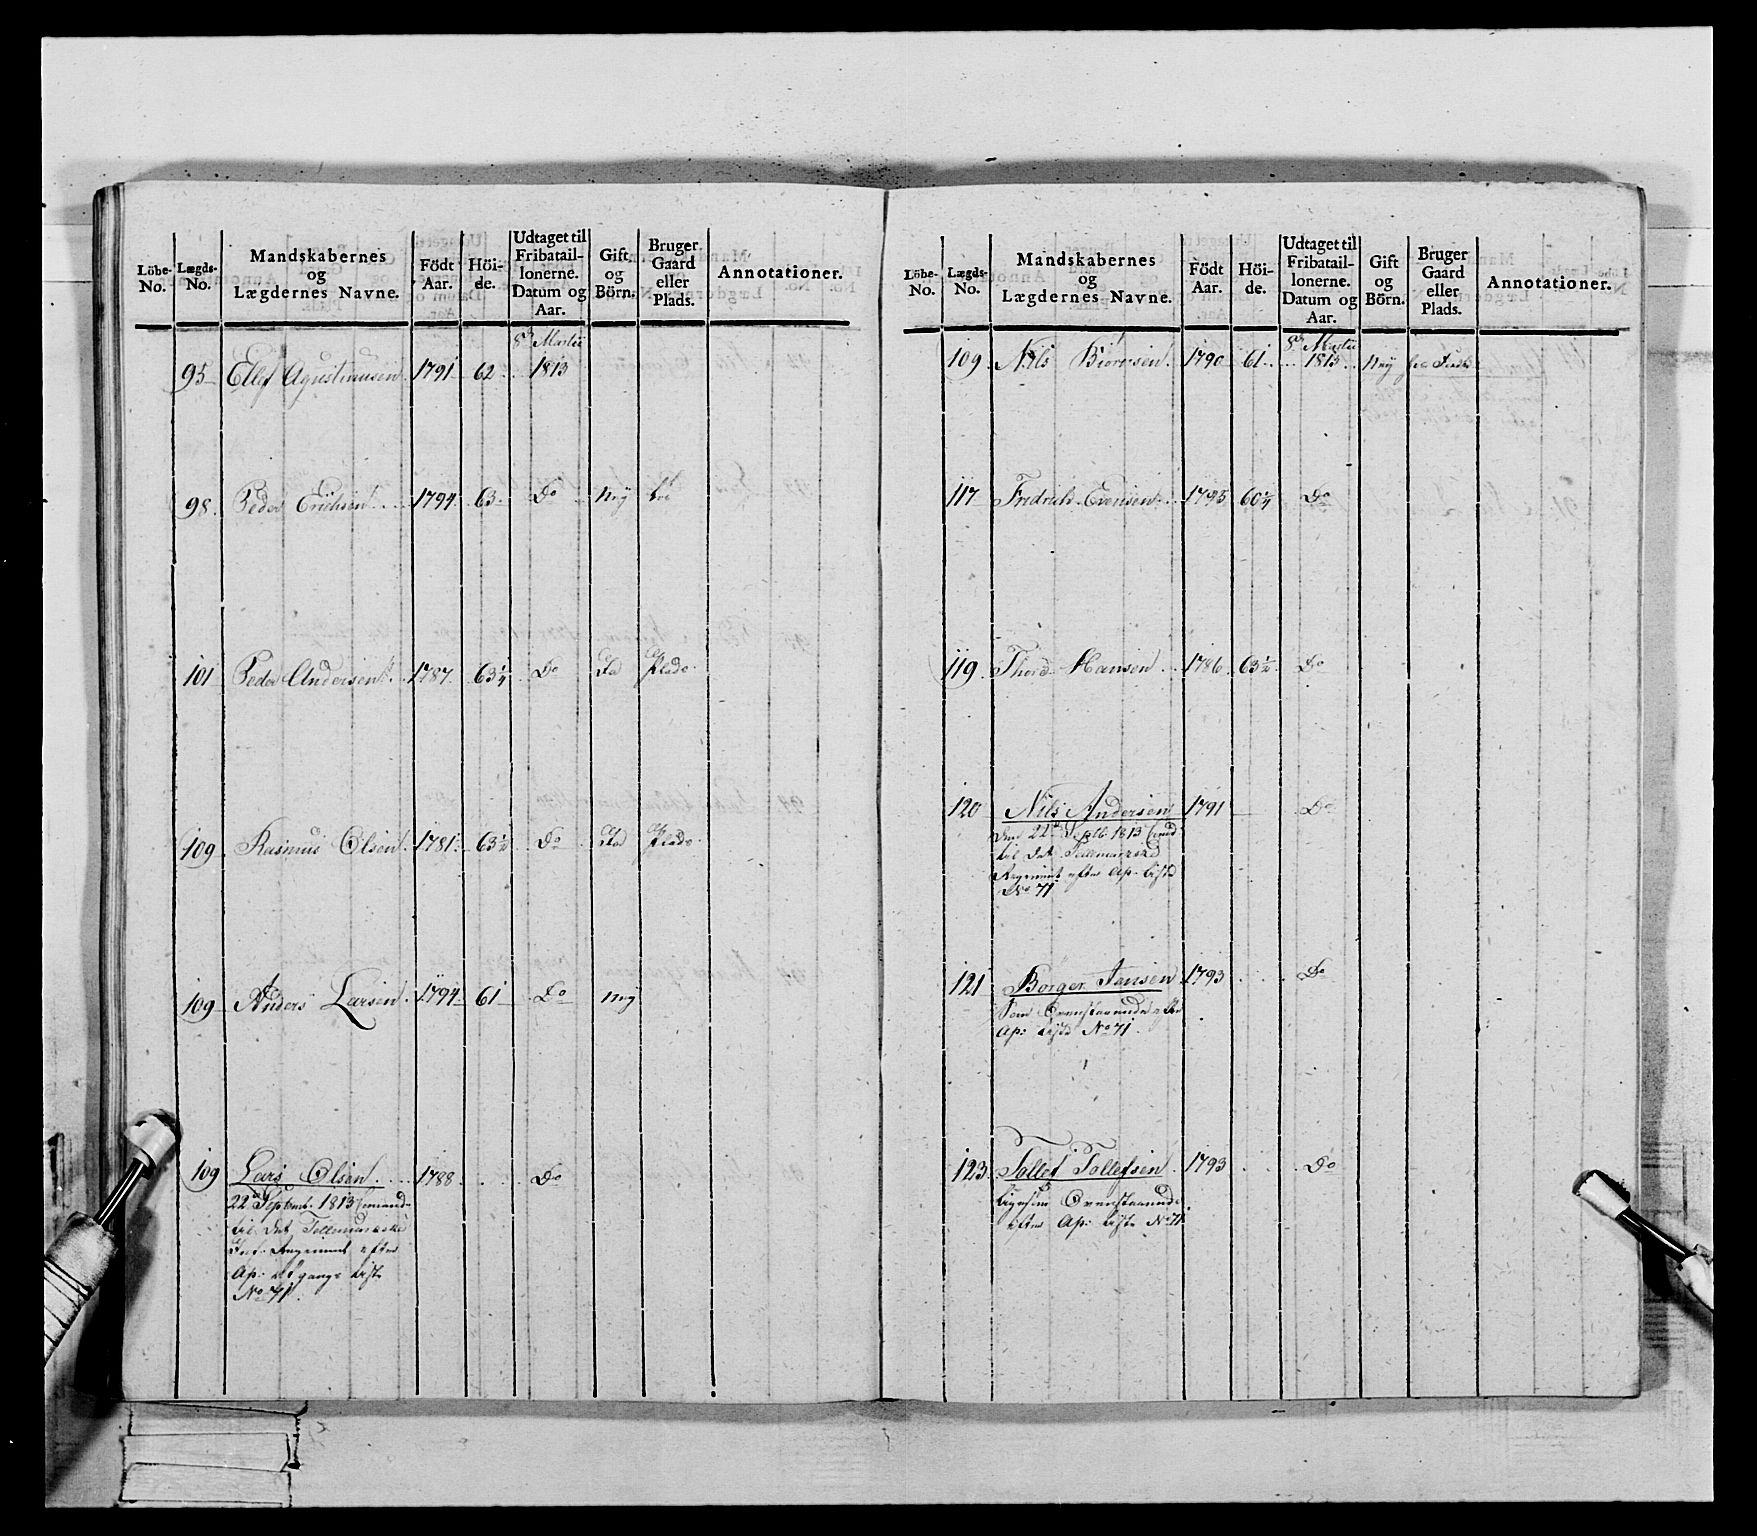 Löbe-No. Lægds-No. Mandskabernes og Lægdernes Navne. Født Aar. Höi-de. Udtaget til Fribatail-lonerne. Datum og Aar. Gift og Börn. Bruger Gaard eller Plads. Annotationer.
8de Martii
95 Ellef Agustinusen 1791 62 1813
98. Peder Erichsen 1794 63 Do Ney
101 Peder Andersen 1787 63 1/4 Do Ja Plads
109 Rasmus Olsen 1781 63 1/2 Do Ja Plads
109 Anders Larsen 1794 61 Do Ney
109 Lars Olsen 1788 Do
22de Septemb. 1813
til det Tellemarkske
Inf. Regiment efter
Ap: Afgangs Liste
No 71.
Löbe-No. Lægds-No. Mandskabernes og Lægdernes Navne. Födt Aar. Höi-de. Udtaget til Fribatail-lonerne. Datum og Aar. Gift og Börn. Bruger Gaard eller Plads. Annotationer.
8de Martii
109 Nils Biørnsen 1790 61 1813 Ney
117 Fredrich Evensen 1795 60 1/4 Do
119 Thord Hansen 1786 63 1/2 Do
120 Nils Andersen 1791 Do
Den 22de Septb 1813
til det Tellemarkske
Regiment efter Ap. Liste
No 71
121 Børger Jansen 1793 Do
Som Ovenstaaende efter
Ap: Liste No 71.
123 Tollef Tollefsen 1793 Do
Ligesom Ovenstaaende
efter Ap: Liste No 71.